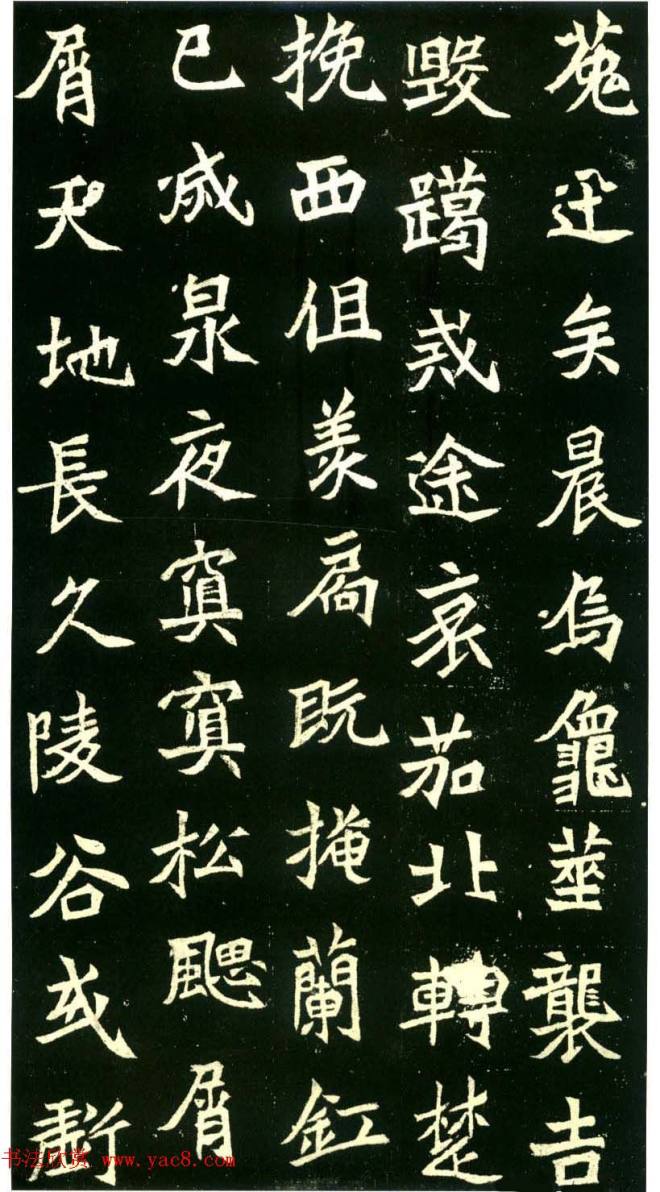 菟迁矣晨烏龜莖襲吉
毀躅戒途哀茄北轉楚
挽西徂羨扃既掩蘭釭
已戚泉夜寘寘松颸屑
屑天地長久陵谷或虧
书法欣赏 www.yac8.com